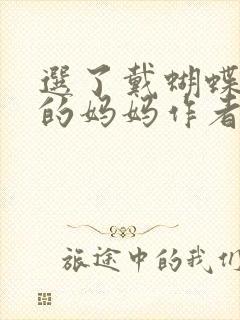 選了戴蝴蝶
的妈妈作者
旅途中的我们